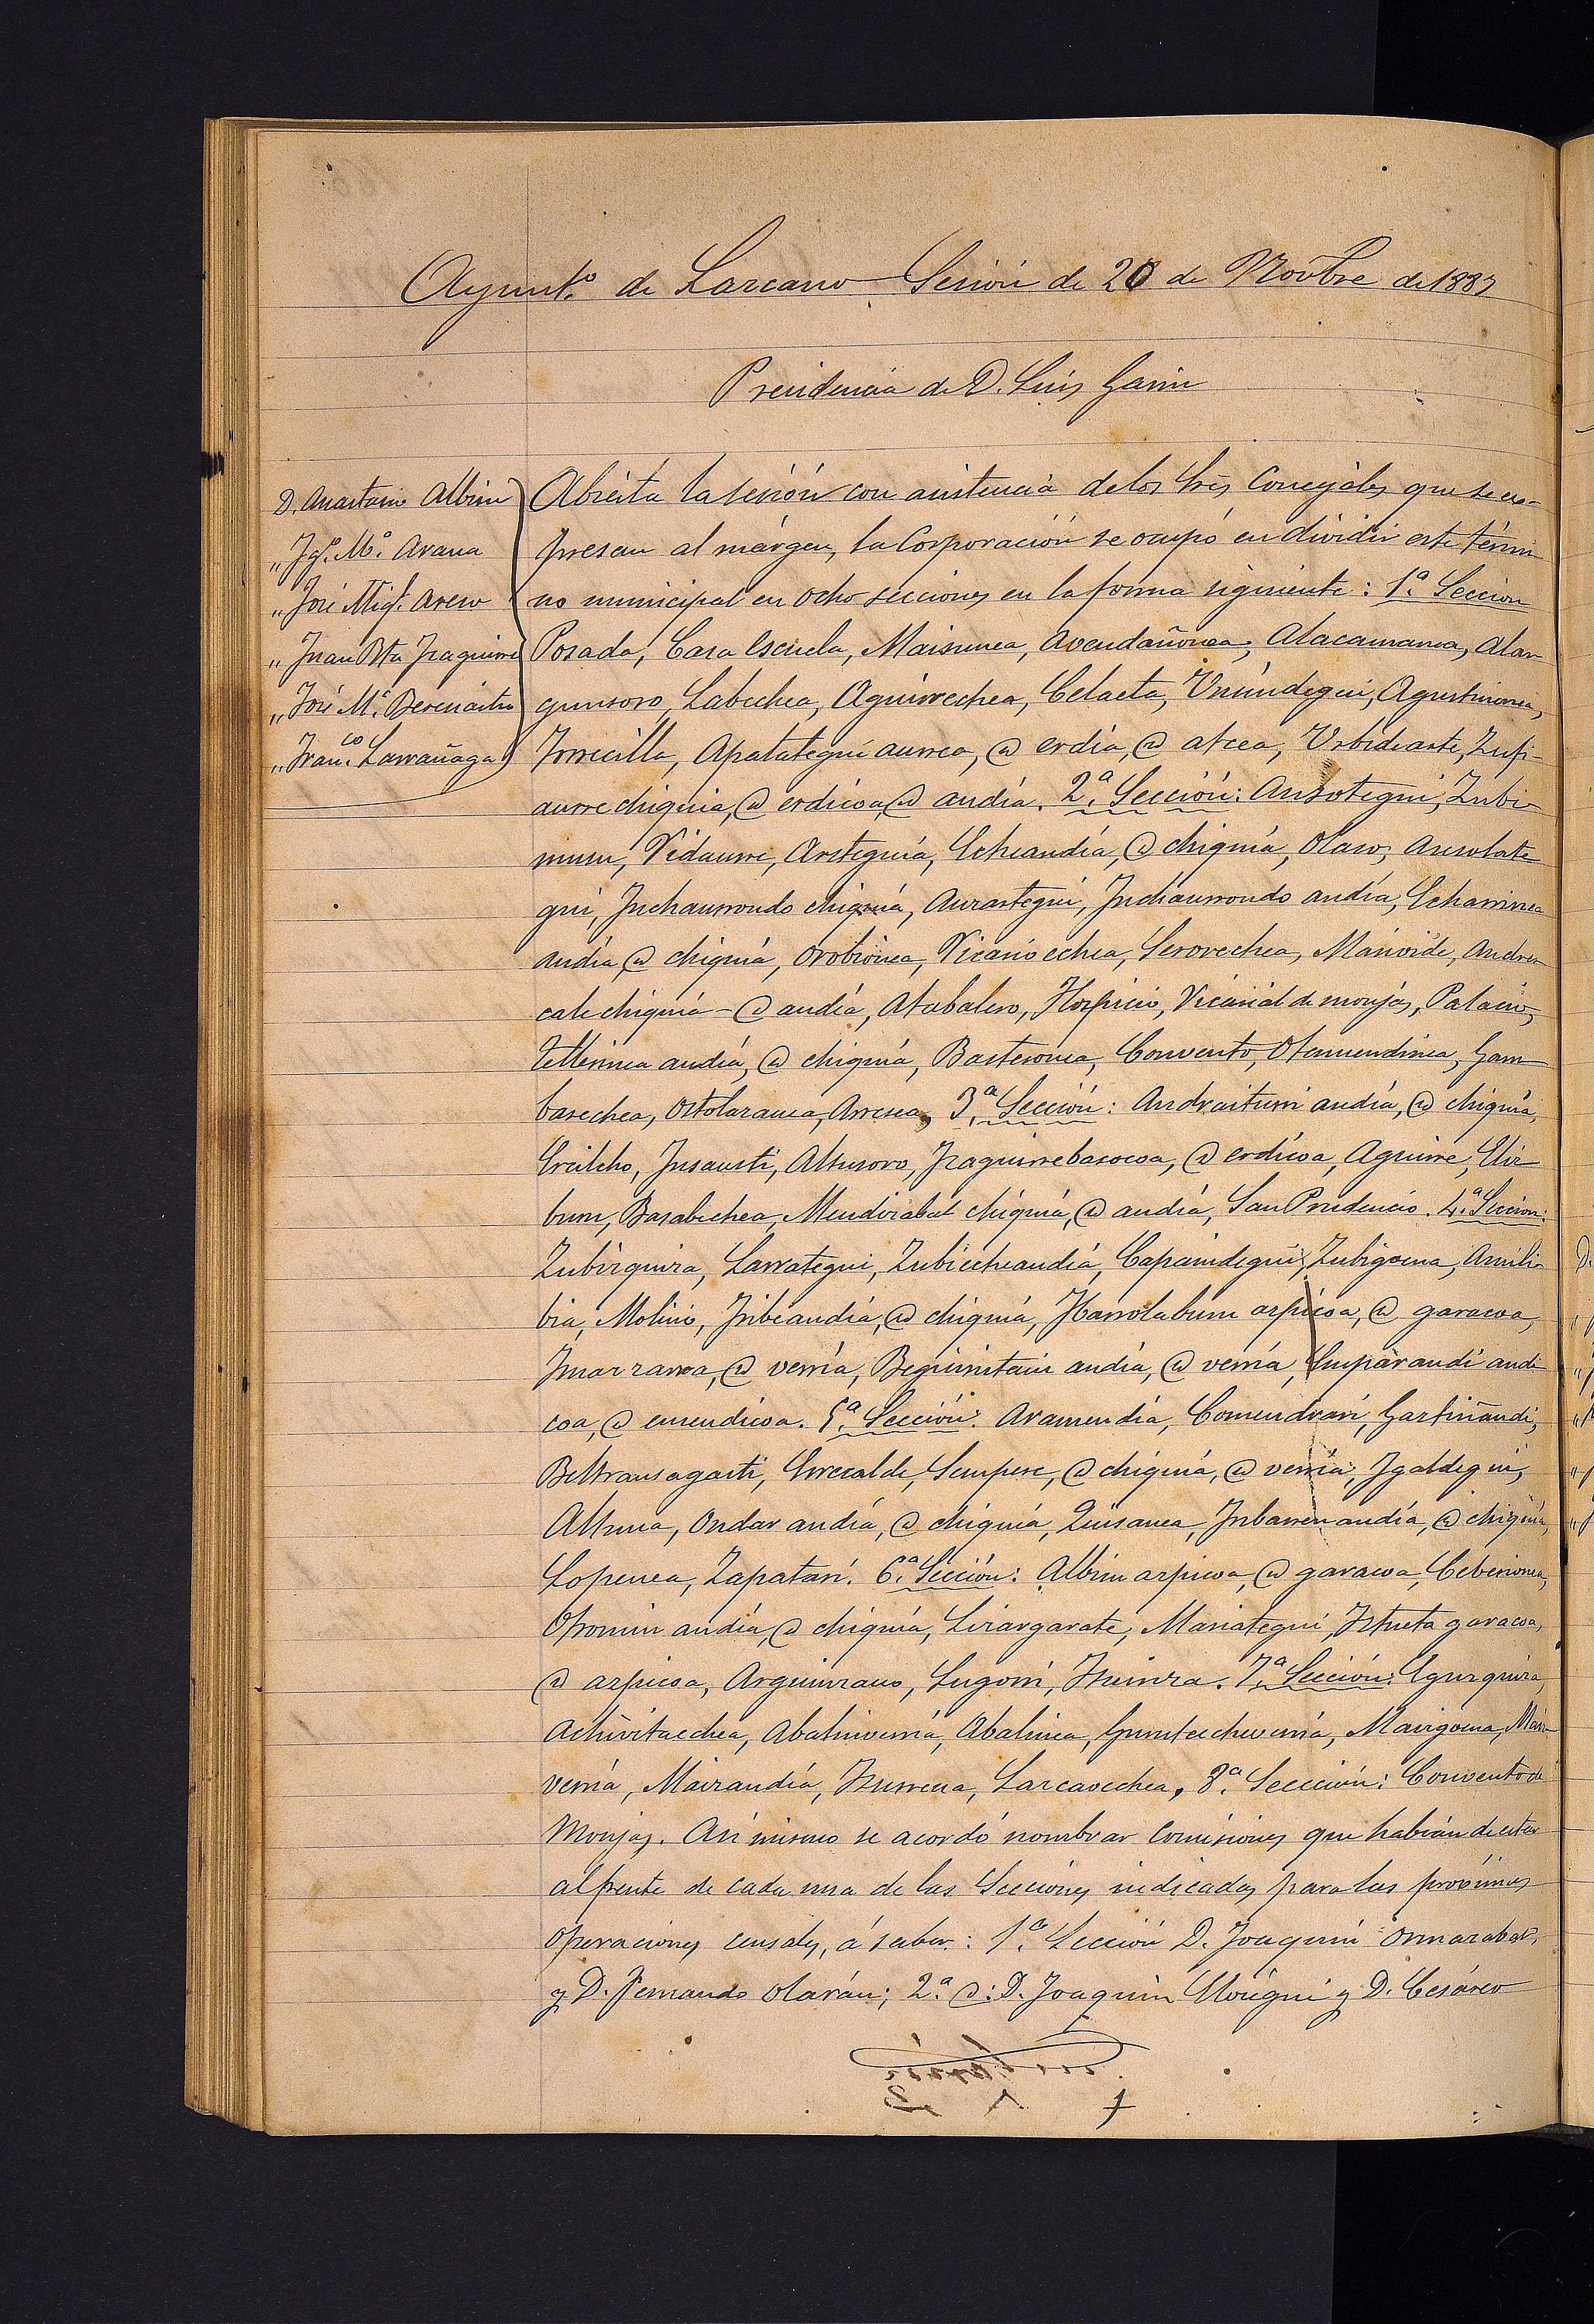 Ayunt.º de Lazcano Sesión de 20 de Novbre de 1887
Presidencia de D. Luis Garin
D. Anastasio Albisu
„ Ig.º M.ª Arana
„ José Mig.l
„ Juan Bta Izaguirre
„ José M.ª Berasiartu
„ Fran.co Larrañaga
Abierta la sesión con asistencia de los Sres Concejales que se es-
presan al márgen, la Corporación se ocupó en dividir este térmi-
no municipal en ocho secciones en la forma siguiente: 1.ª Sección
Posada, Casa Escuela, Maisunea, Avendañonea, Atacamanoa, Alan-
gunsoro, Labechea, Aguirrechea, Celaeta, Urúndegui, Agustinonea,
Torrecilla, Apalategui aurrea, @ erdia, @ atcea, Urbidearte, Zufi-
aurre chiquia, @ erdicoa, @ andia. 2.ª Sección: Ansotegui, Zubi-
musu, Vidaurre, Arsteguia, Echeandia, @ chiquia, Olaso, Ansolate-
gui, Inchaurrondo chiquia, Aurastegui, Inchaurrondo andia, Echarrinea
andia, @ chiquia, Orobionea, Vicario echea, Serorechea, Marivide, Andre-
cale chiquia - @ andia, Atabalero, Hospicio, Vicarial de monjas, Palacio,
Tellerinea andia, @ chiquia, Basteronea, Convento, Otamendinea, Gam-
barechea, Ostolazanea, Arresea, 3.ª Sección: Andraiturri andia, @ chiquia,
Ercilcho, Insausti, Altusoro, Izaguirre basocoa, @ erdicoa, Aguirre, Eliz-
buru, Basabechea, Mendizabal chiquia, @ andia, San Prudencio. 4.ª Sección:
Zubizquiza, Larrategui, Zubiecheandia, Capaindegui, Zubigoena, Amili-
bia, Molino, Iribeandia, @ chiquia, Harrolaburu azpicoa, @ garacoa,
Imaz zarra, @ verria, Beguiristain andia, @ verria, Emparandi andi-
coa, @ emendicoa. 5.ª Sección: Aramendia, Comendrari, Garfiñandi,
Beltransagasti, Errecalde, Sempere, @ chiquia, @ verria, Igaldegui,
Altuna, Ondar andia, @ chiquia, Luisanea, Iribarren andia, @ chiquia,
Lopenea, Zapatari. 6.ª Sección: Albisu azpicoa, @ garacoa, Ceberionea,
Otromin andia, @ chiquia, Lizargarate, Mariategui, Iztueta garacoa,
@ azpicoa, Arguinzano, Lugorri, 7.ª Sección: Egurquiza,
Achivitaechea, Abalinverria, Abalinea, Maizgoena, Maiz-
verria, Maizandia, Iturrena, Lazcaoechea, 8.ª Sección: Convento de
Monjas. Asi mismo se acordó nombrar comisiones que habian de estar
al frente de cada una de las Secciones indicadas para las próximas
operaciones censales, á saber: 1.ª Sección D. Joaquin Ormazabal,
y D. Fernando Olarán; 2.ª @: D. Joaquin Elórigui y D. Cesáreo